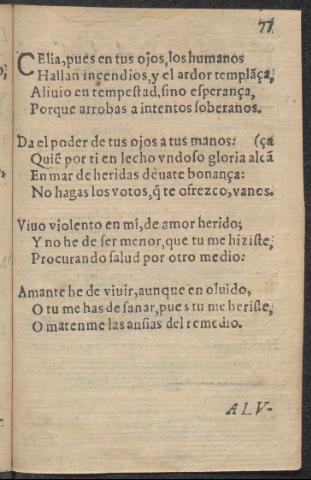 77
CElia, pues en tus ojos, los humanos
Hallan incendios, y el ardor templãça,
Aliuio en tempestad, sino esperança,
Porque arrobas a intentos soberanos.
Da el poder de tus ojos a tus manos: (ça
Quiẽ por ti en lecho vndoso gloria alcã
En mar de heridas deuate bonança:
No hagas los votos, q̃ te ofrezco, vanos.
Viuo violento en mi, de amor herido;
Y no he de ser menor, que tu me hiziste;
Procurando salud por otro medio:
Amante he de viuir, aunque en oluido,
O tu me has de sanar, pues tu me heriste,
O matenme las ansias del remedio.
ALV-